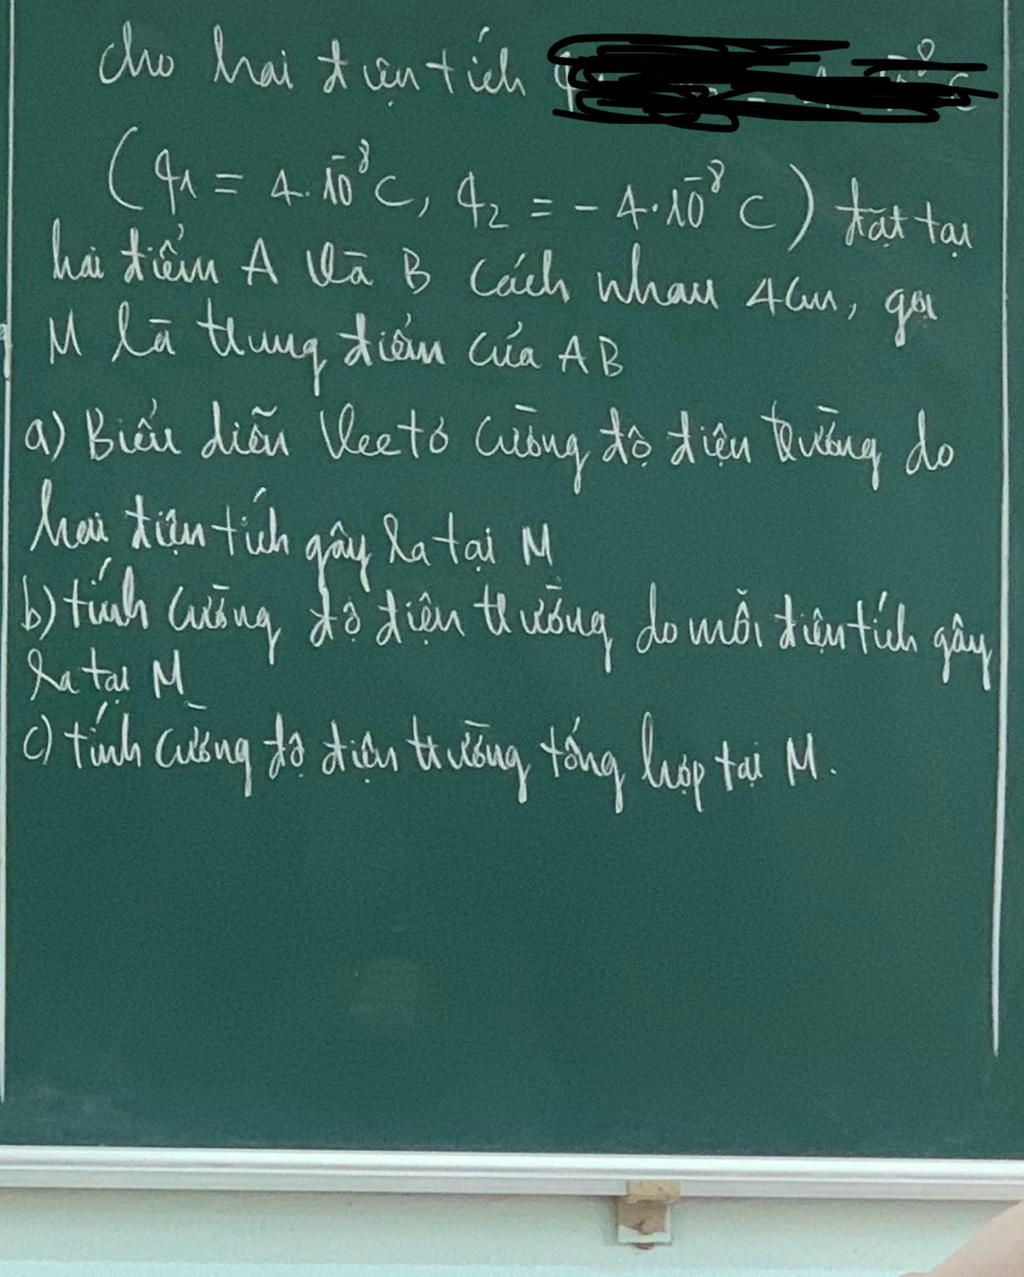 cho hai điện tích
(q₁ = 4.10⁻⁸C, q₂ = -4.10⁻⁸ C) đặt tại
hai điểm A và B cách nhau 4cm, gọi
M là trung điểm của AB
a) Biểu diễn Vectơ cường độ điện trường do
hai điện tích gây ra tại M
b) tính cường độ điện trường do mỗi điện tích gây
ra tại M
c) tính cường độ điện trường tổng hợp tại M.